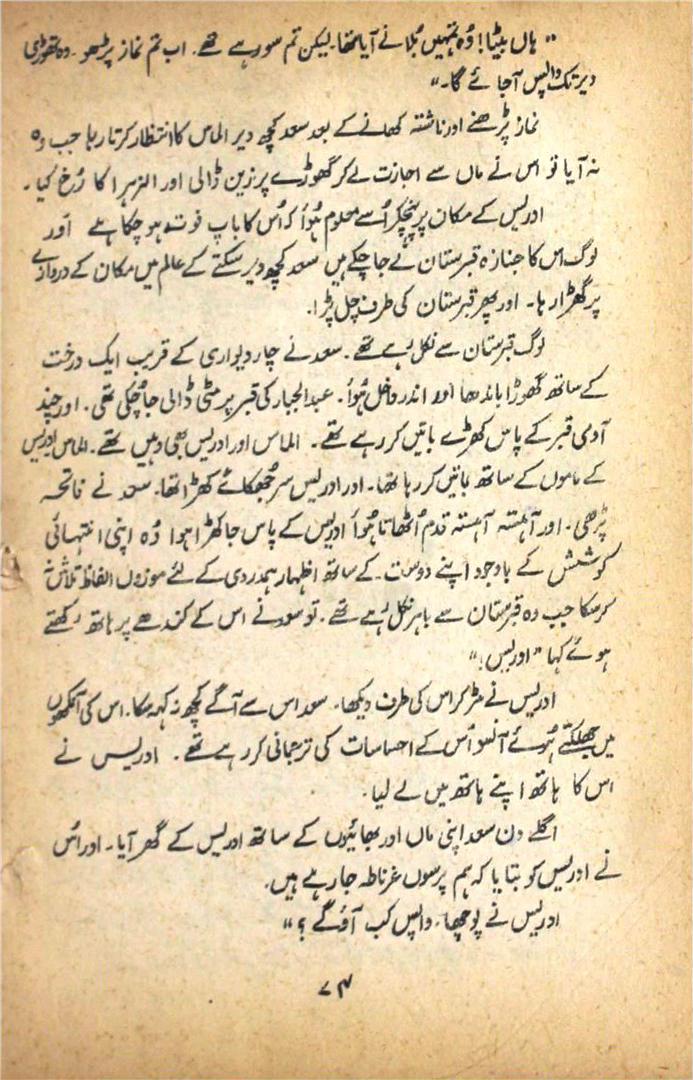 "ہاں بیٹا! وُہ تمہیں بُلانے آیا تھا۔ لیکن تم سو رہے تھے۔ اب تم نماز پڑھو۔ وہ تھوڑی
دیر تک واپس آجائے گا۔"
نماز پڑھنے اور ناشتہ کھانے کے بعد سعد کچھ دیر الماس کا انتظار کرتا رہا جب وہ
نہ آیا تو اس نے ماں سے اجازت لے کر گھوڑے پر زین ڈالی اور الزہرا کا رُخ کیا۔
ادریس کے مکان پر پہنچکر اُسے معلوم ہُوا کہ اُس کا باپ فوت ہو چکا ہے اور
لوگ اس کا جنازہ قبرستان لے جا چکے ہیں سعد کچھ دیر سکتے کے عالم میں مکان کے دروازے
پر کھڑا رہا۔ اور پھر قبرستان کی طرف چل پڑا۔
لوگ قبرستان سے نکل رہے تھے۔ سعد نے چار دیواری کے قریب ایک درخت
کے ساتھ گھوڑا باندھا اور اندر داخل ہُوا۔ عبدالجبار کی قبر پر مٹی ڈالی جا چُکی تھی۔ اور چند
آدمی قبر کے پاس کھڑے باتیں کر رہے تھے۔ الماس اور ادریس بھی وہیں تھے۔ الماس ادریس
کے ماموں کے ساتھ باتیں کر رہا تھا۔ اور ادریس سر جُھکائے کھڑا تھا۔ سعد نے فاتحہ
پڑھی۔ اور آہستہ آہستہ قدم اُٹھاتا ہُوا ادریس کے پاس جا کھڑا ہوا وُہ اپنی انتہائی
کوشش کے باوجود اپنے دوست کے ساتھ اظہارِ ہمدردی کے لئے موزوں الفاظ تلاش نہ
کر سکا جب وہ قبرستان سے باہر نکل رہے تھے۔ تو سعد نے اس کے کندھے پر ہاتھ رکھتے
ہوئے کہا "ادریس!"
ادریس نے مڑ کر اس کی طرف دیکھا۔ سعد اس سے آگے کچھ نہ کہہ سکا۔ اس کی آنکھوں
میں چھلکتے ہُوئے آنسو اُس کے احساسات کی ترجمانی کر رہے تھے۔ ادریس نے
اس کا ہاتھ اپنے ہاتھ میں لے لیا۔
اگلے دن سعد اپنی ماں اور بھائیوں کے ساتھ ادریس کے گھر آیا۔ اور اُس
نے ادریس کو بتایا کہ ہم پرسوں غرناطہ جا رہے ہیں۔
ادریس نے پوچھا۔ واپس کب آؤ گے؟"
۷۴